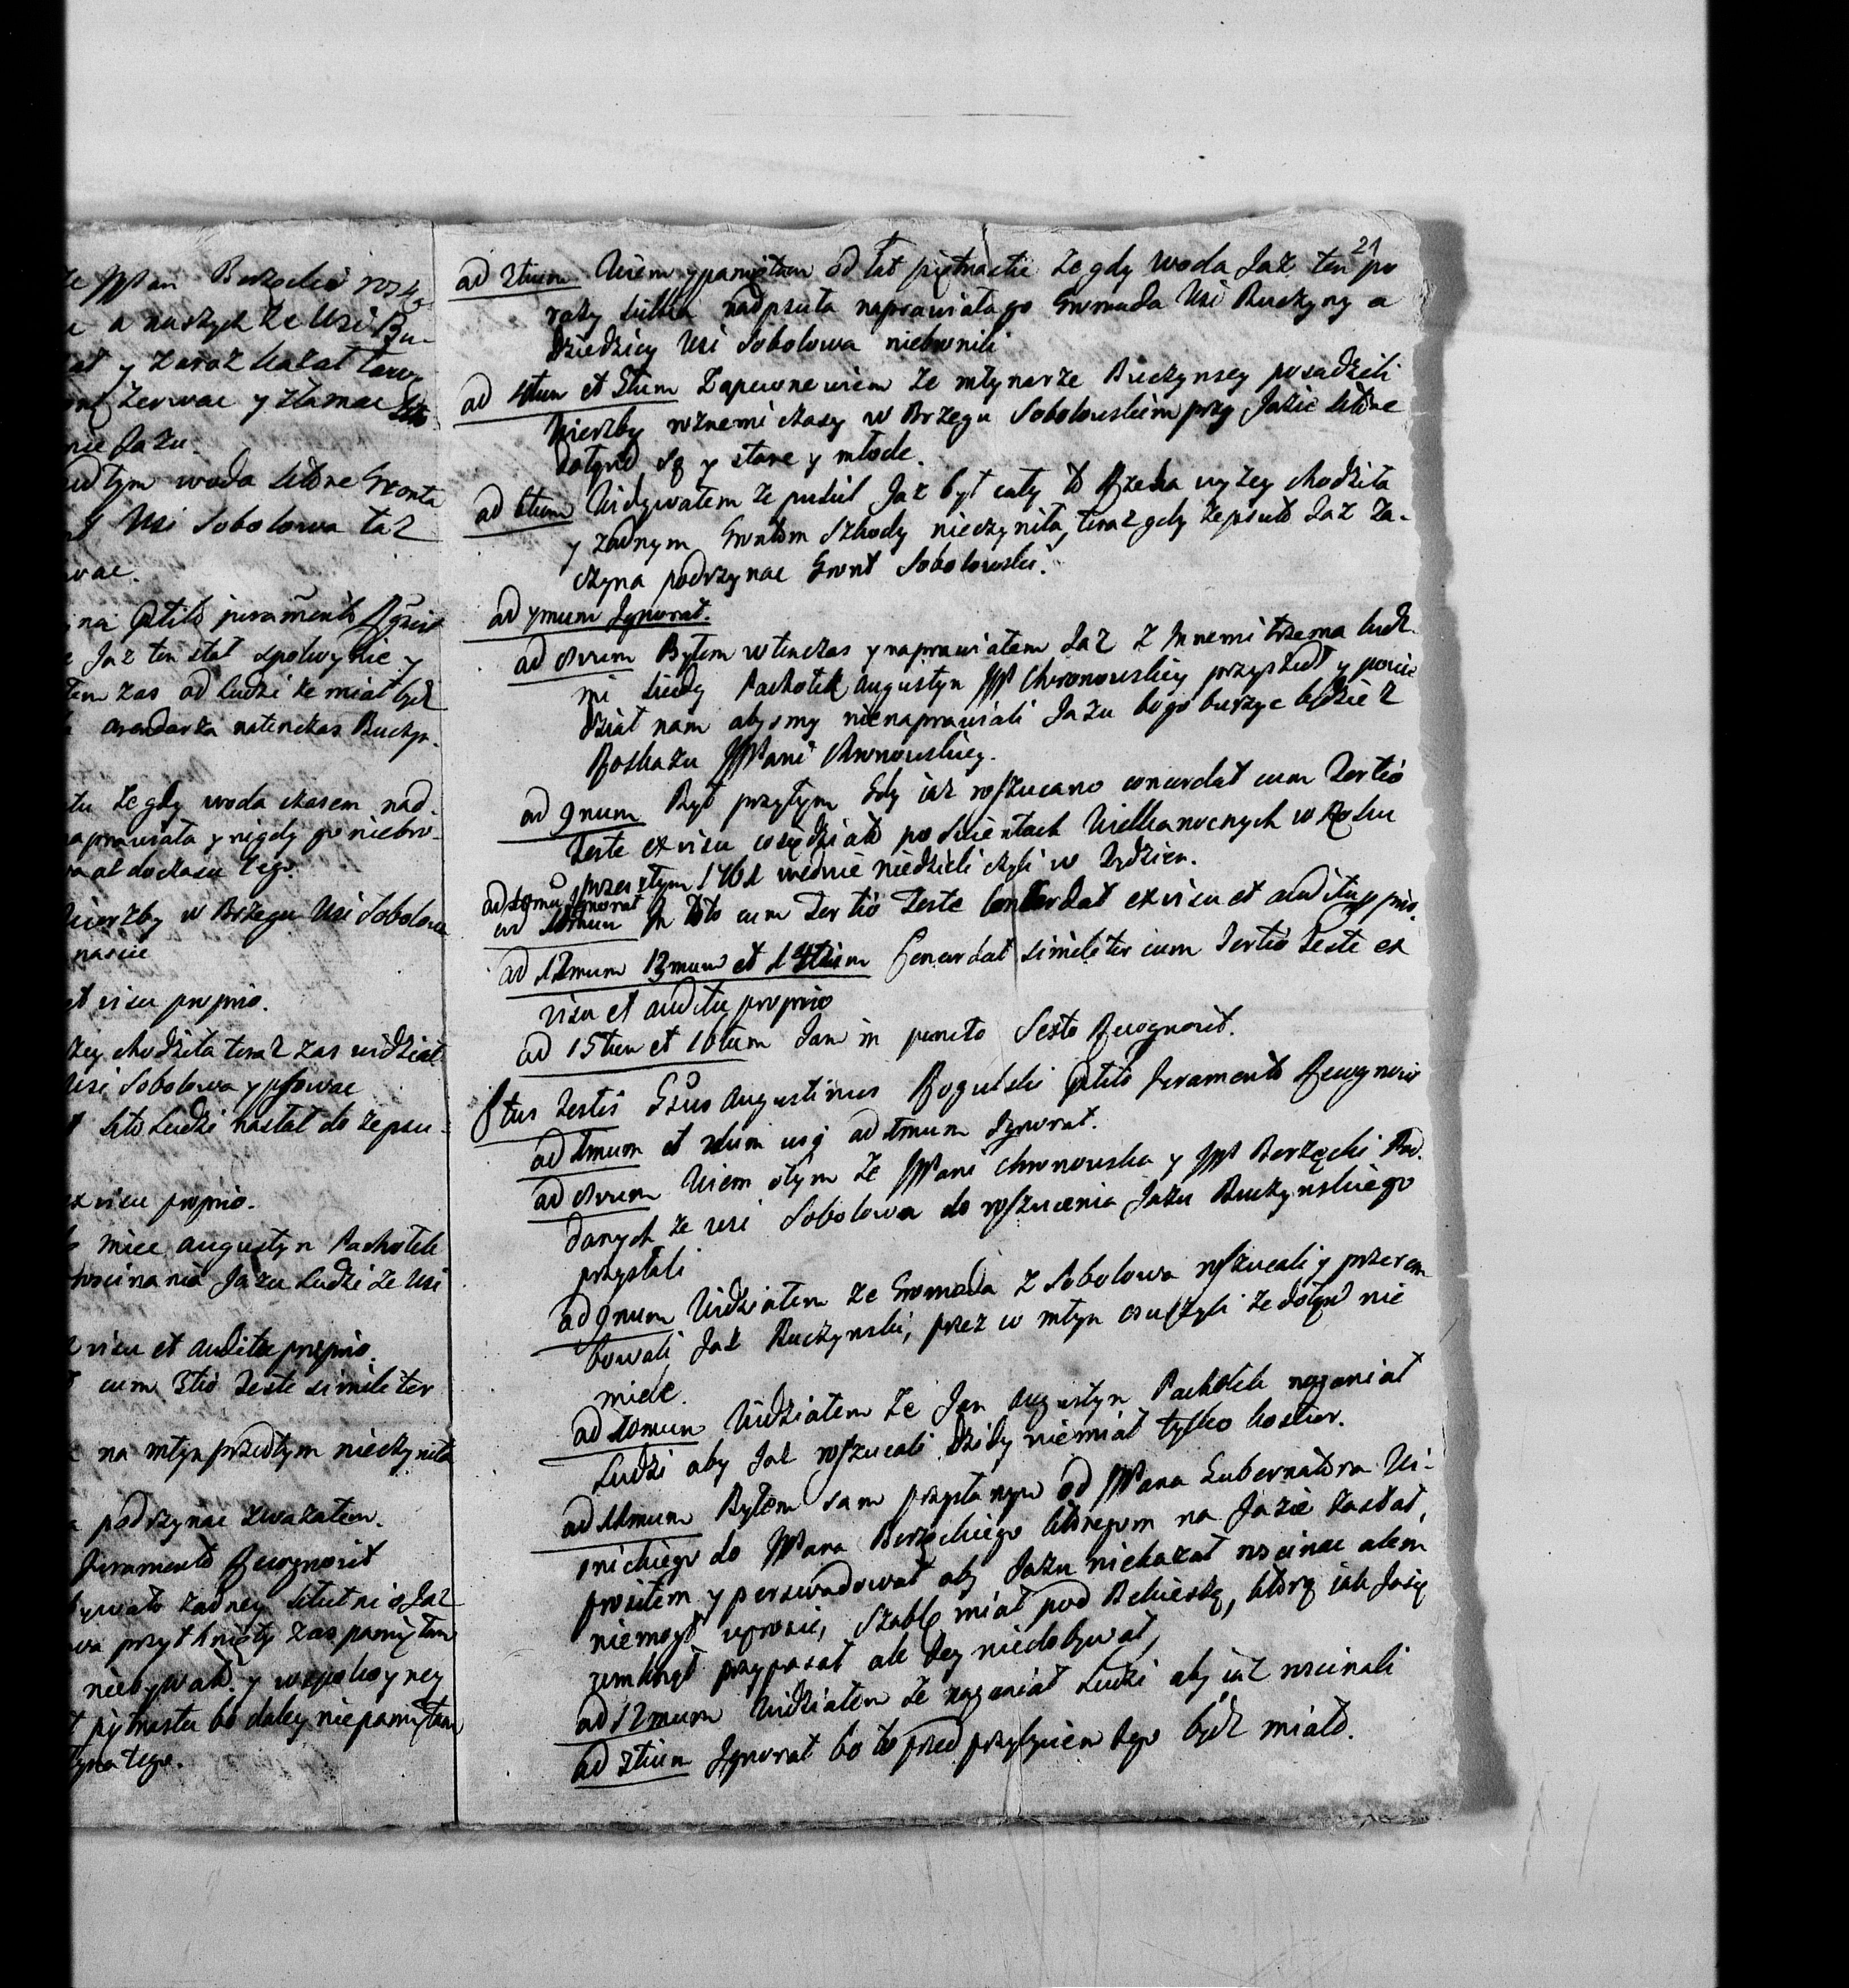 że JWPan Borzecki rosk
a naszych ze Wsi Bu-
y zaraz kazał
zerwac y złamac
nie Jazu.
tym woda ktore Gronta
Wsi Sobolowa taż
wac.
na Ptito juramento
Jaz ten stał spokoynie y
tem zas od ludzi ze miał bydź
arendarza natenczas Buczyn.
ze gdy woda czasem nad-
naprawiała y nigdy go niebro-
az do czasu tego.
Wierzby w Brzegu Wsi Sobolowa
nascie
et visu proprio.
chodziła teraz zas widział
Wsi Sobolowa y psowac
kto Ludzi nasłał do zepsu-
ex visu proprio.
mice Augustyn Pachołek
wscinania Jazu Ludzi ze Wsi
visu et auditu proprio.
cum 3tio Teste similiter
na młyn przedtym nieczyniła
podrzynac zwazałem.
Juramento Recognovit
zadney kłutni o Jaz
przytknięty zas pamiętam
niebywało y w spokoyney
piętnastu bo daley niepamiętam
tego.
21
ad 3tium Wiem y pamiętam od lat piętnastu że gdy woda Jaz ten po
razy kilka nadpsuła naprawiała go Gromada Wsi Buczyny a
Dziedzicy Wsi Sobolowa niebronili
ad 4tum et 5tum Zapewne wiem że młynarze Buczynscy posadzili
Wierzby roznemi czasy w Brzegu Sobolowskim przy Jazie ktore
dotąd są y stare y młode.
ad 6tum Widywałem że pukił Jaz był cały to Rzeka wyzey chodziła
y zadnym Grontom Szkody nieczyniła, teraz gdy zepsuto Jaz za-
czyna podrzynac Gront Sobolowski.
ad 7mum Ignorat.
ad 8vum Byłem wtenczas y naprawiałem Jaz z Innemi trzema ludź-
mi kiedy Pachołek Augustyn JP Chronowskiey przyszedł y powie
dział nam abysmy nienaprawiali Jazu bo go burzyc będzie z
Roskazu JWPani Chronowskiey.
ad 9num Był przytym Gdy jaz roszucano concordat cum Tertio
Teste ex visu co się działo po Swientach Wielkanocnych w Roku
przeszłym 1761 wednie niedzieli czyli w Tydzien.
ad 10mum Ignorat
ad 11mum In toto cum Tertio Teste Concordat ex visu et auditu pprio.
ad 12mum 13mum et 14tum Concordat similiter cum Tertio Teste ex
visu et auditu proprio
ad 15tum et 16tum Jam in puncto Sexto Recognovit.
8tus Testis Gsus Augustinus Rogulski Ptito Juramento Recognovit
ad 1mum et 2dum usq ad 7mum Ignorat.
ad 8vum Wiem otym że JWPani Chronowska y JP Borzęcki Pod-
danych ze wsi Sobolowa do roszucenia Jazu Buczynskiego
przysłali
ad 9num Widziałem że Gromada z Sobolowa roszucali y przerem
bowali Jaz Buczynski, przez co młyn osuszyli że dotąd nie
miele.
ad 10mum Widziałem że Jan Augustyn Pachołek naganiał
Ludzi aby Jaz roszucali dzidy niemiał tylko kostur.
ad 11mum Byłem sam przysłanym od JWPana Gubernatora Wi-
snickiego do JWPana Borzeckiego ktoregom na Jazie zastał,
prosiłem y perswadował aby Jazu niekazał wscinac alem
niemogł uprosic, Szablę miał pod Bekieszką, ktorą jak Jasię
zemknął przypasał ale Jey niedobywał,
ad 12mum Widziałem że naganiał Ludzi aby jaz wscinali
ad 3tium Ignorat bo to przed przybyciem Jego bydź miało.